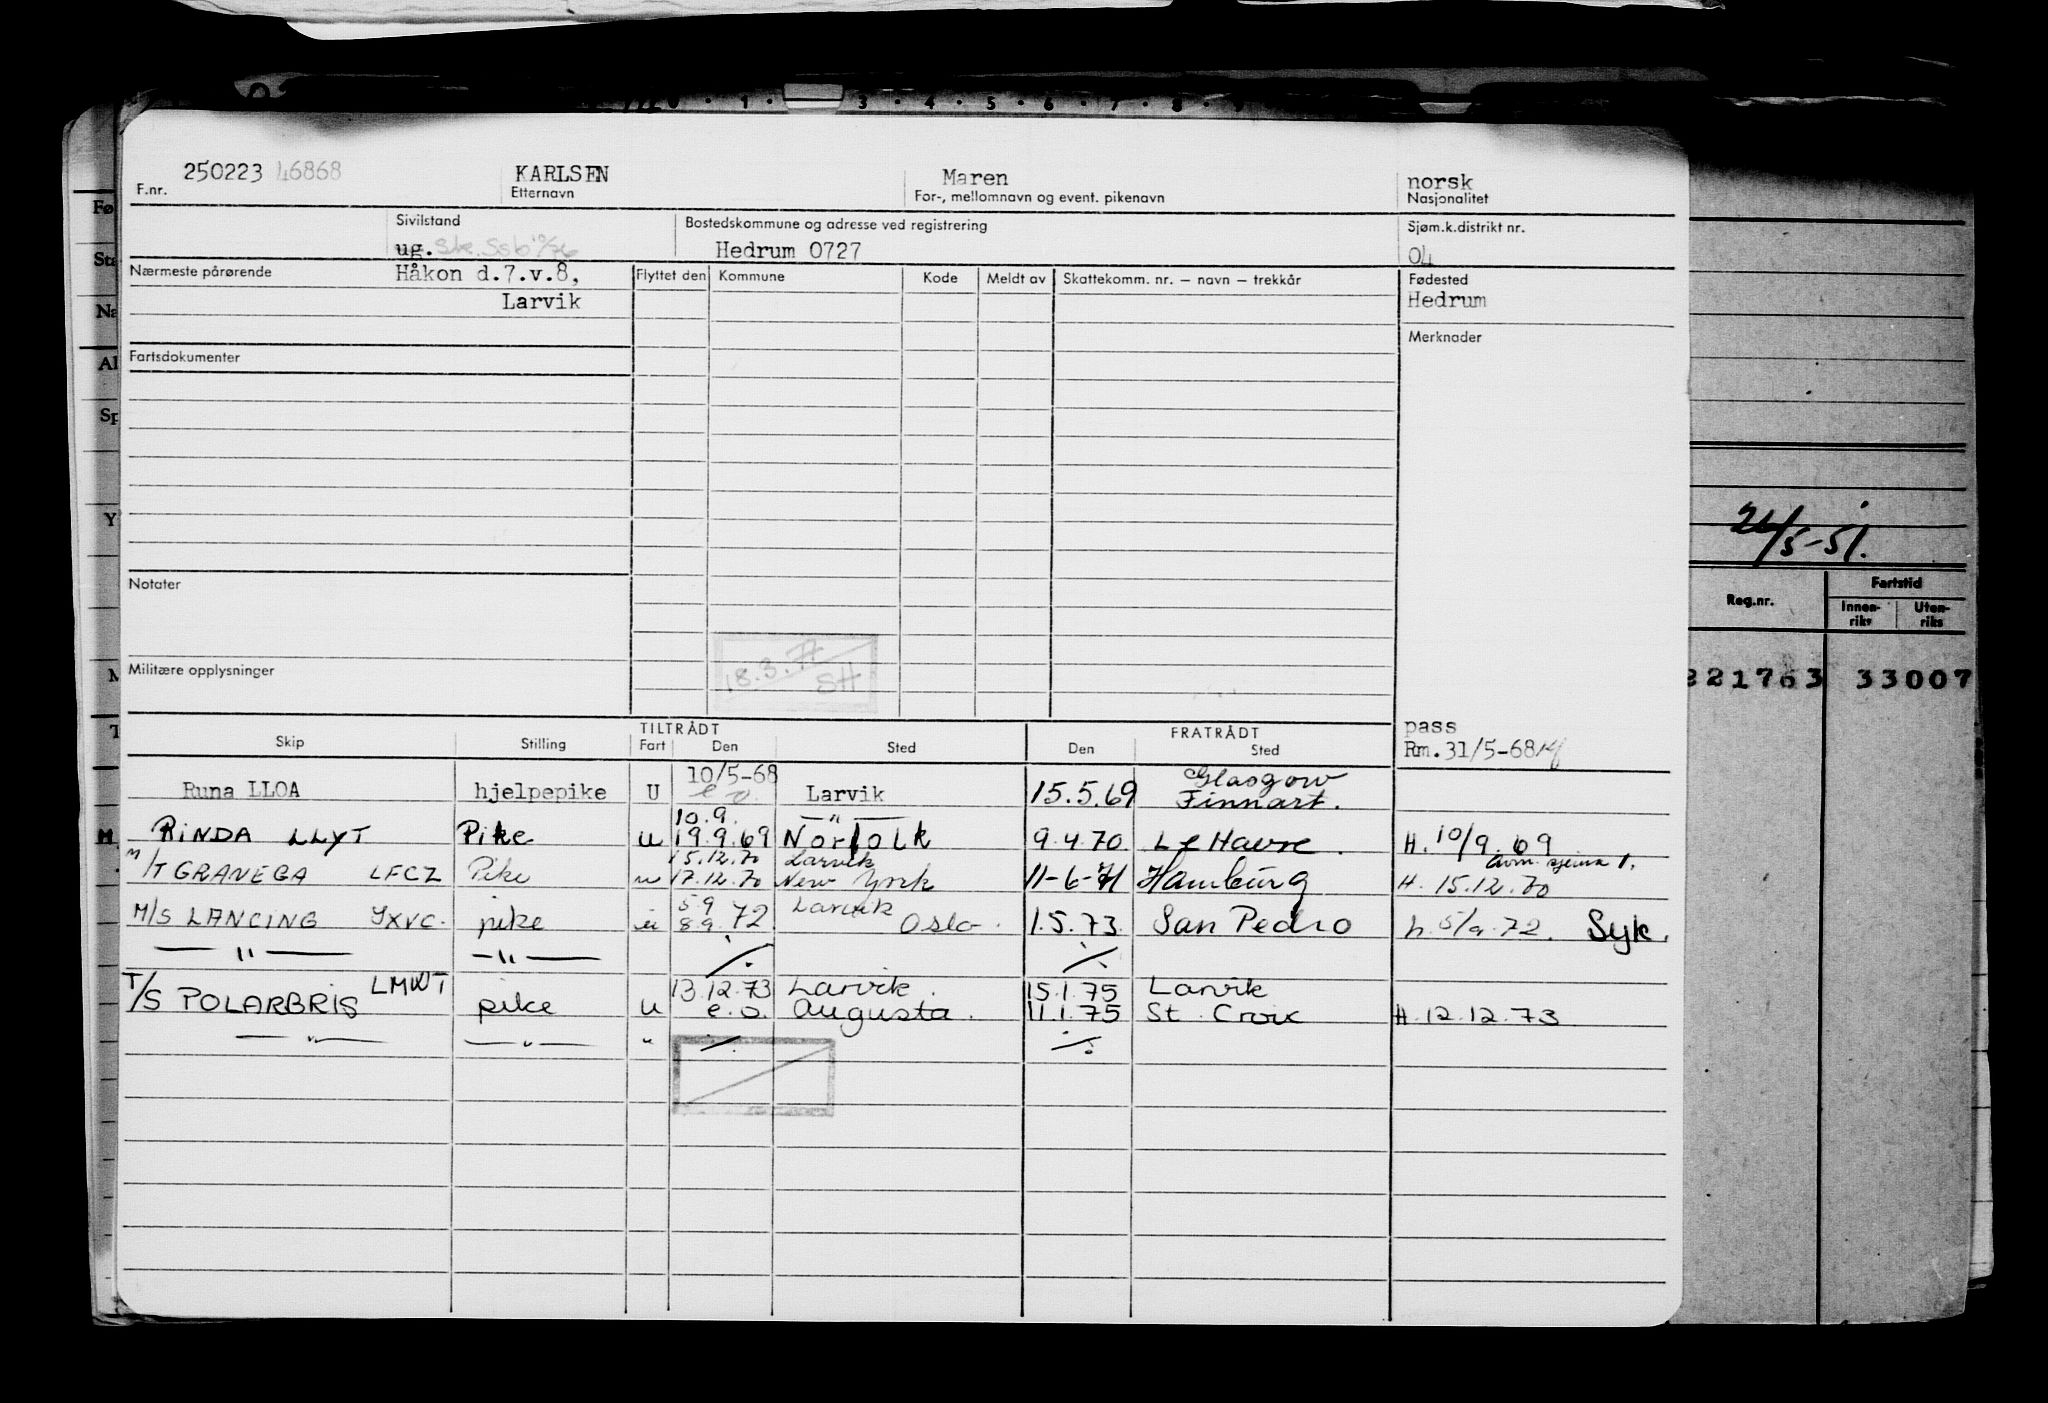 0 · 1 · 3 · 4 · 5 · 6 · 7 · 8 · 9
250223 46868 KARLSEN Maren norsk
F.nr. Etternavn For-, mellomnavn og event. pikenavn Nasjonalitet
Sivilstand Bostedskommune og adresse ved registrering Sjøm.k.distrikt nr.
ug. Ske. Ssb Hedrum 0727 04
Nærmeste pårørende Håkon d.7.v.8, Flyttet den Kommune Kode Meldt av Skattekomm. nr. — navn — trekkår Fødested
Larvik Hedrum
Fartsdokumenter Merknader
24/5-51.
Notater
Reg.nr. Fartstid
Innen-riks Uten-riks
18.3.77
SH
Militære opplysninger
221763 33007
TILTRÅDT FRATRÅDT pass
Skip Stilling Fart Den Sted Den Sted Rm.31/5-68
Runa LLOA hjelpepike U 10/5-68 e.o. Larvik 15.5.69 Glasgow Finnart.
10.9. — " —
RINDA LLYT Pike U 19.9.69 Norfolk 9.4.70 Le Havre. H. 10/9.69
15.12.70 Larvik
M/T GRANEGA LFCZ Pike u 17.12.70 New York 11-6-71 Hamburg H. 15.12.70
5 9 Larvik
M/S LANCING JXVC. pike u 8 9. 72 Oslo. 1.5.73. San Pedro h. 5/9.72. Syk.
— " — — " — ./. ./.
13.12.73 Larvik. 15.1.75 Larvik
T/S POLARBRIS LMWT pike U e.o. Augusta. 11.1.75 St. Croix H.12.12.73
— " — — " — " ./. ./.